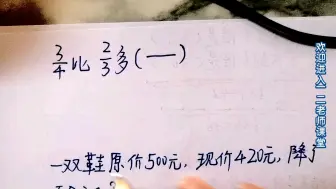 3/4比 2/3多(—)
一双鞋原价500元,现价420元,降了
欢迎进入 二老师课堂